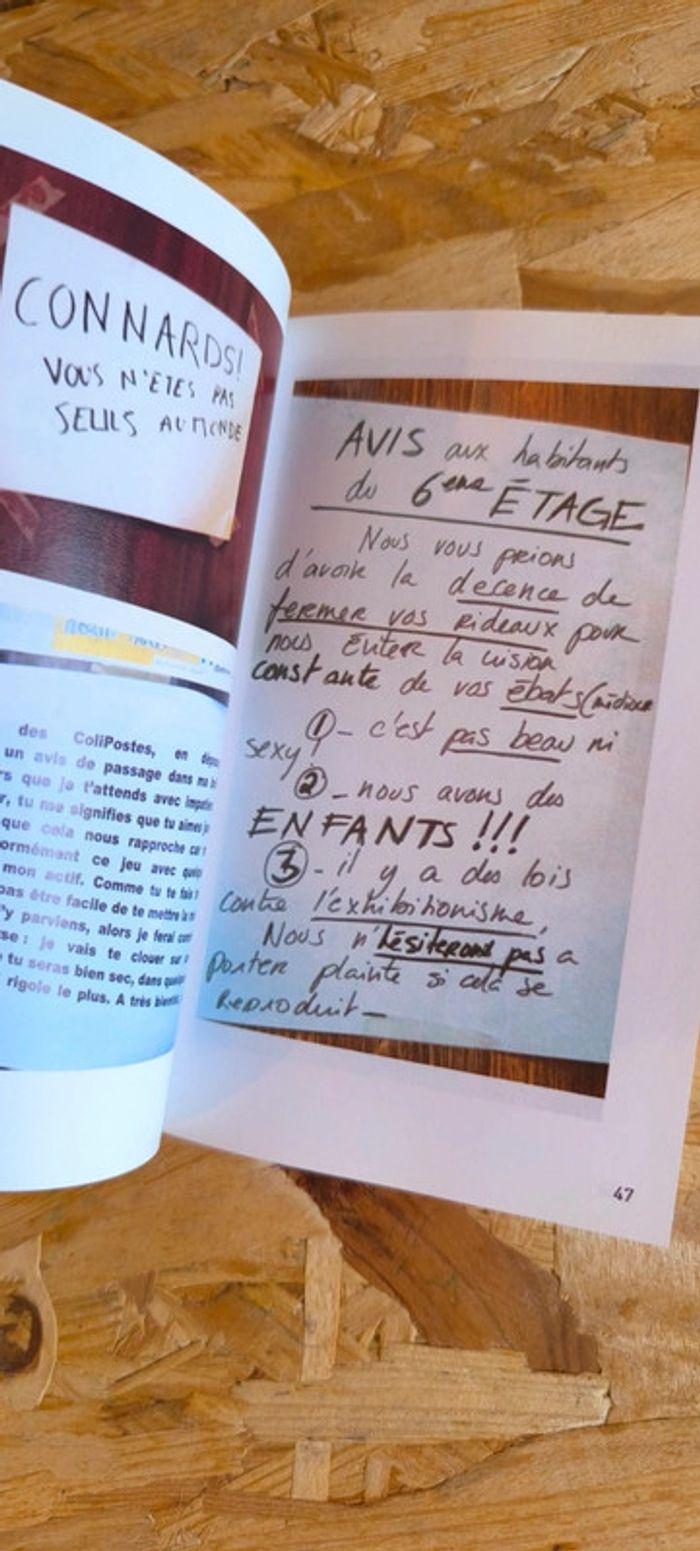 CONNARDS!
VOUS N'ETES PAS
SEULS AU MONDE
des ColiPostes, en
un avis de passage dans ma
que je t'attends avec
tu me signifies que tu aimes
que cela nous rapproche car
ce jeu avec
mon actif. Comme tu te fais
pas être facile de te mettre la
parviens, alors je ferai
: je vais te clouer sur
tu seras bien sec, dans
rigole le plus. A très
AVIS aux habitants
du 6eme ÉTAGE
Nous vous prions
d'avoir la decence de
fermer vos rideaux pour
nous éviter la vision
constante de vos ébats (médiocre
① - c'est pas beau ni
sexy!
② - nous avons des
ENFANTS !!!
③ - il y a des lois
contre l'exhibitionisme,
Nous n'hésiterons pas a
porter plainte si celà se
Reproduit -
47